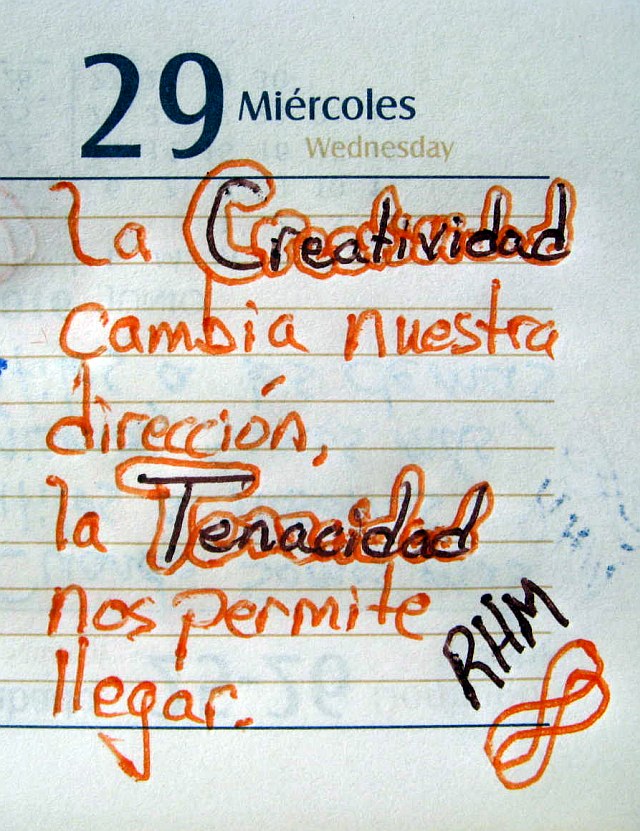 29 Miércoles
Wednesday
La Creatividad
Cambia nuestra
dirección,
la Tenacidad
nos permite
llegar.
RHM